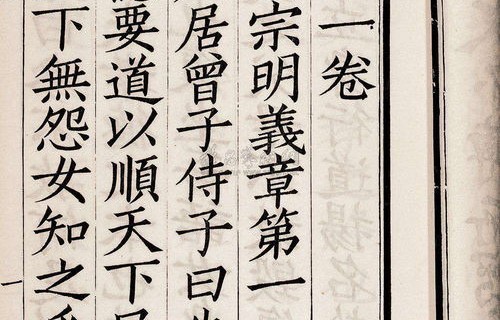 一卷
宗明義章第一
居曾子侍子曰
要道以順天下
下無怨女知之
一